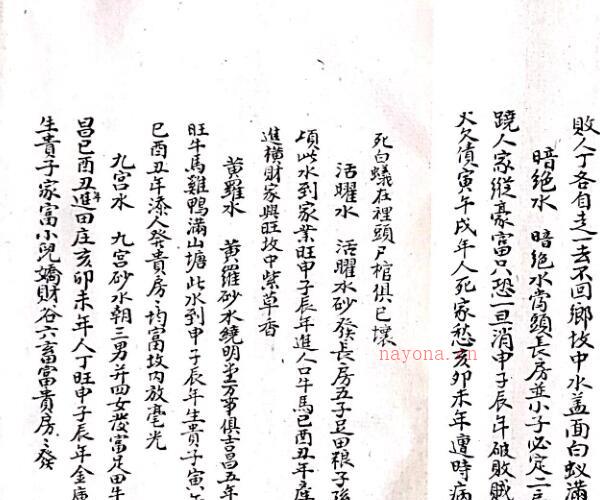 敗人丁各自走一去不回鄉坟中水盖面白蚁滿
暗絶水　暗絶水當頭長房並小子必定二
蹺人家縱豪富只恐一旦消申子辰年破敗賊
火欠債寅午戌年人死家愁亥卯未年遭時病
死白蟻在裡頭尸棺俱已壞
活曜水　活曜水砂發長房五子足田粮子孫
頃此水到家業旺申子辰年進人口牛馬巳酉丑年產
進横財家興旺坟中紫草香
黄羅水　黄羅砂水繞明堂万事俱吉昌五年
旺牛馬雞鴨滿山塘此水到申子辰年生貴子寅午
巳酉丑年添人發貴房〻均富坟内放毫光
九宫水　九宫砂水朝三男并四女發富足田牛
昌巳酉丑進田庄亥卯未年人丁旺申子辰年金庫
生貴子家富小兒嬌財谷六畜富貴房〻發
nayona.cn